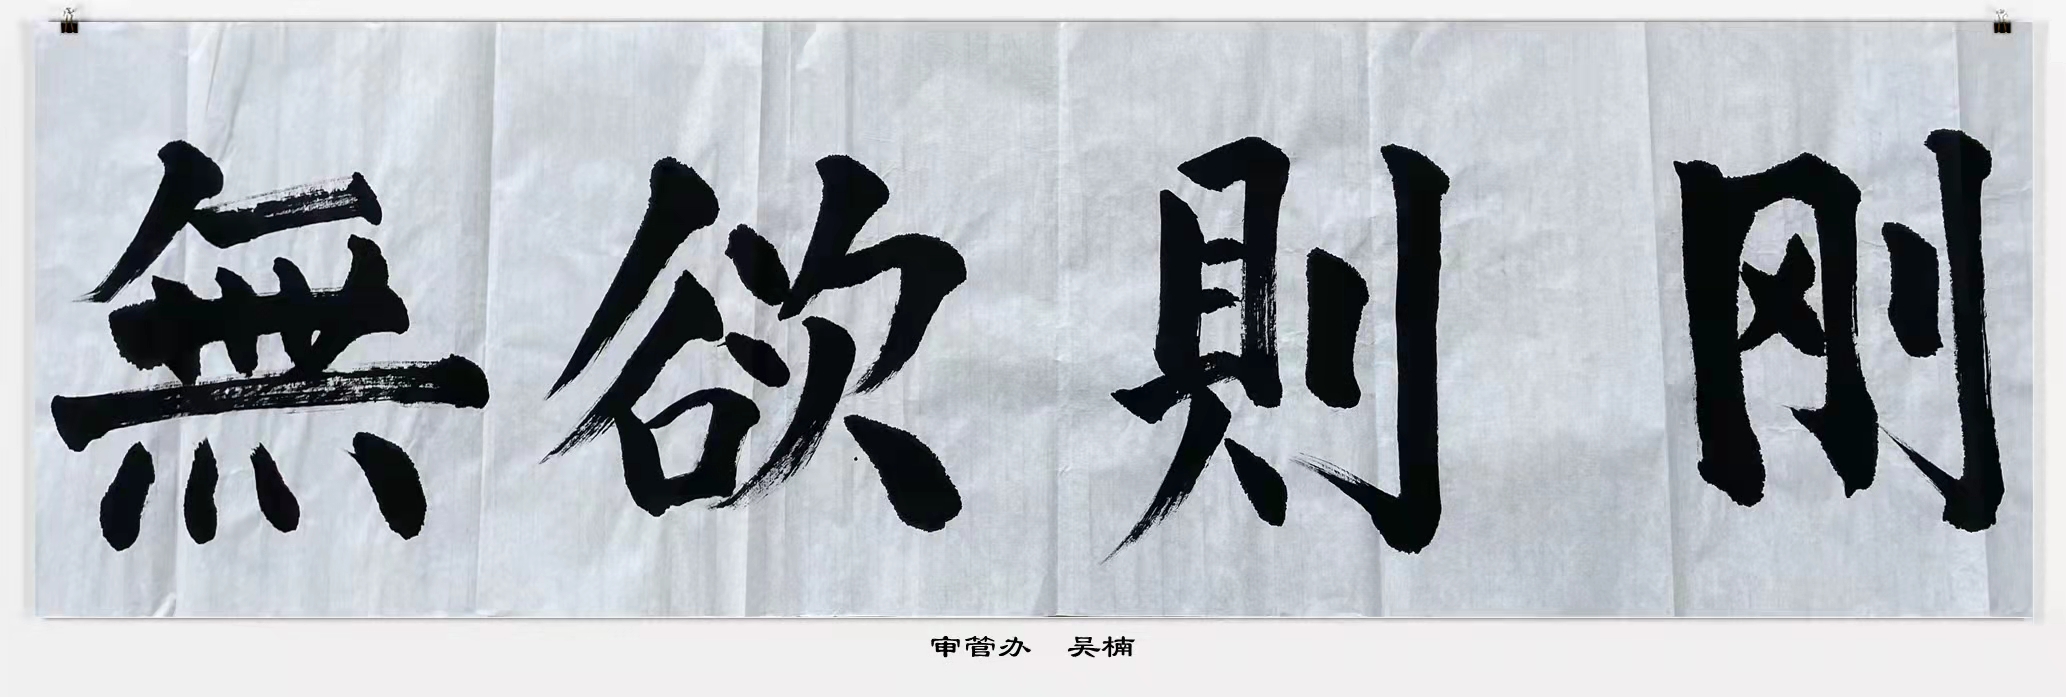 無欲則刚
审管办 吴楠